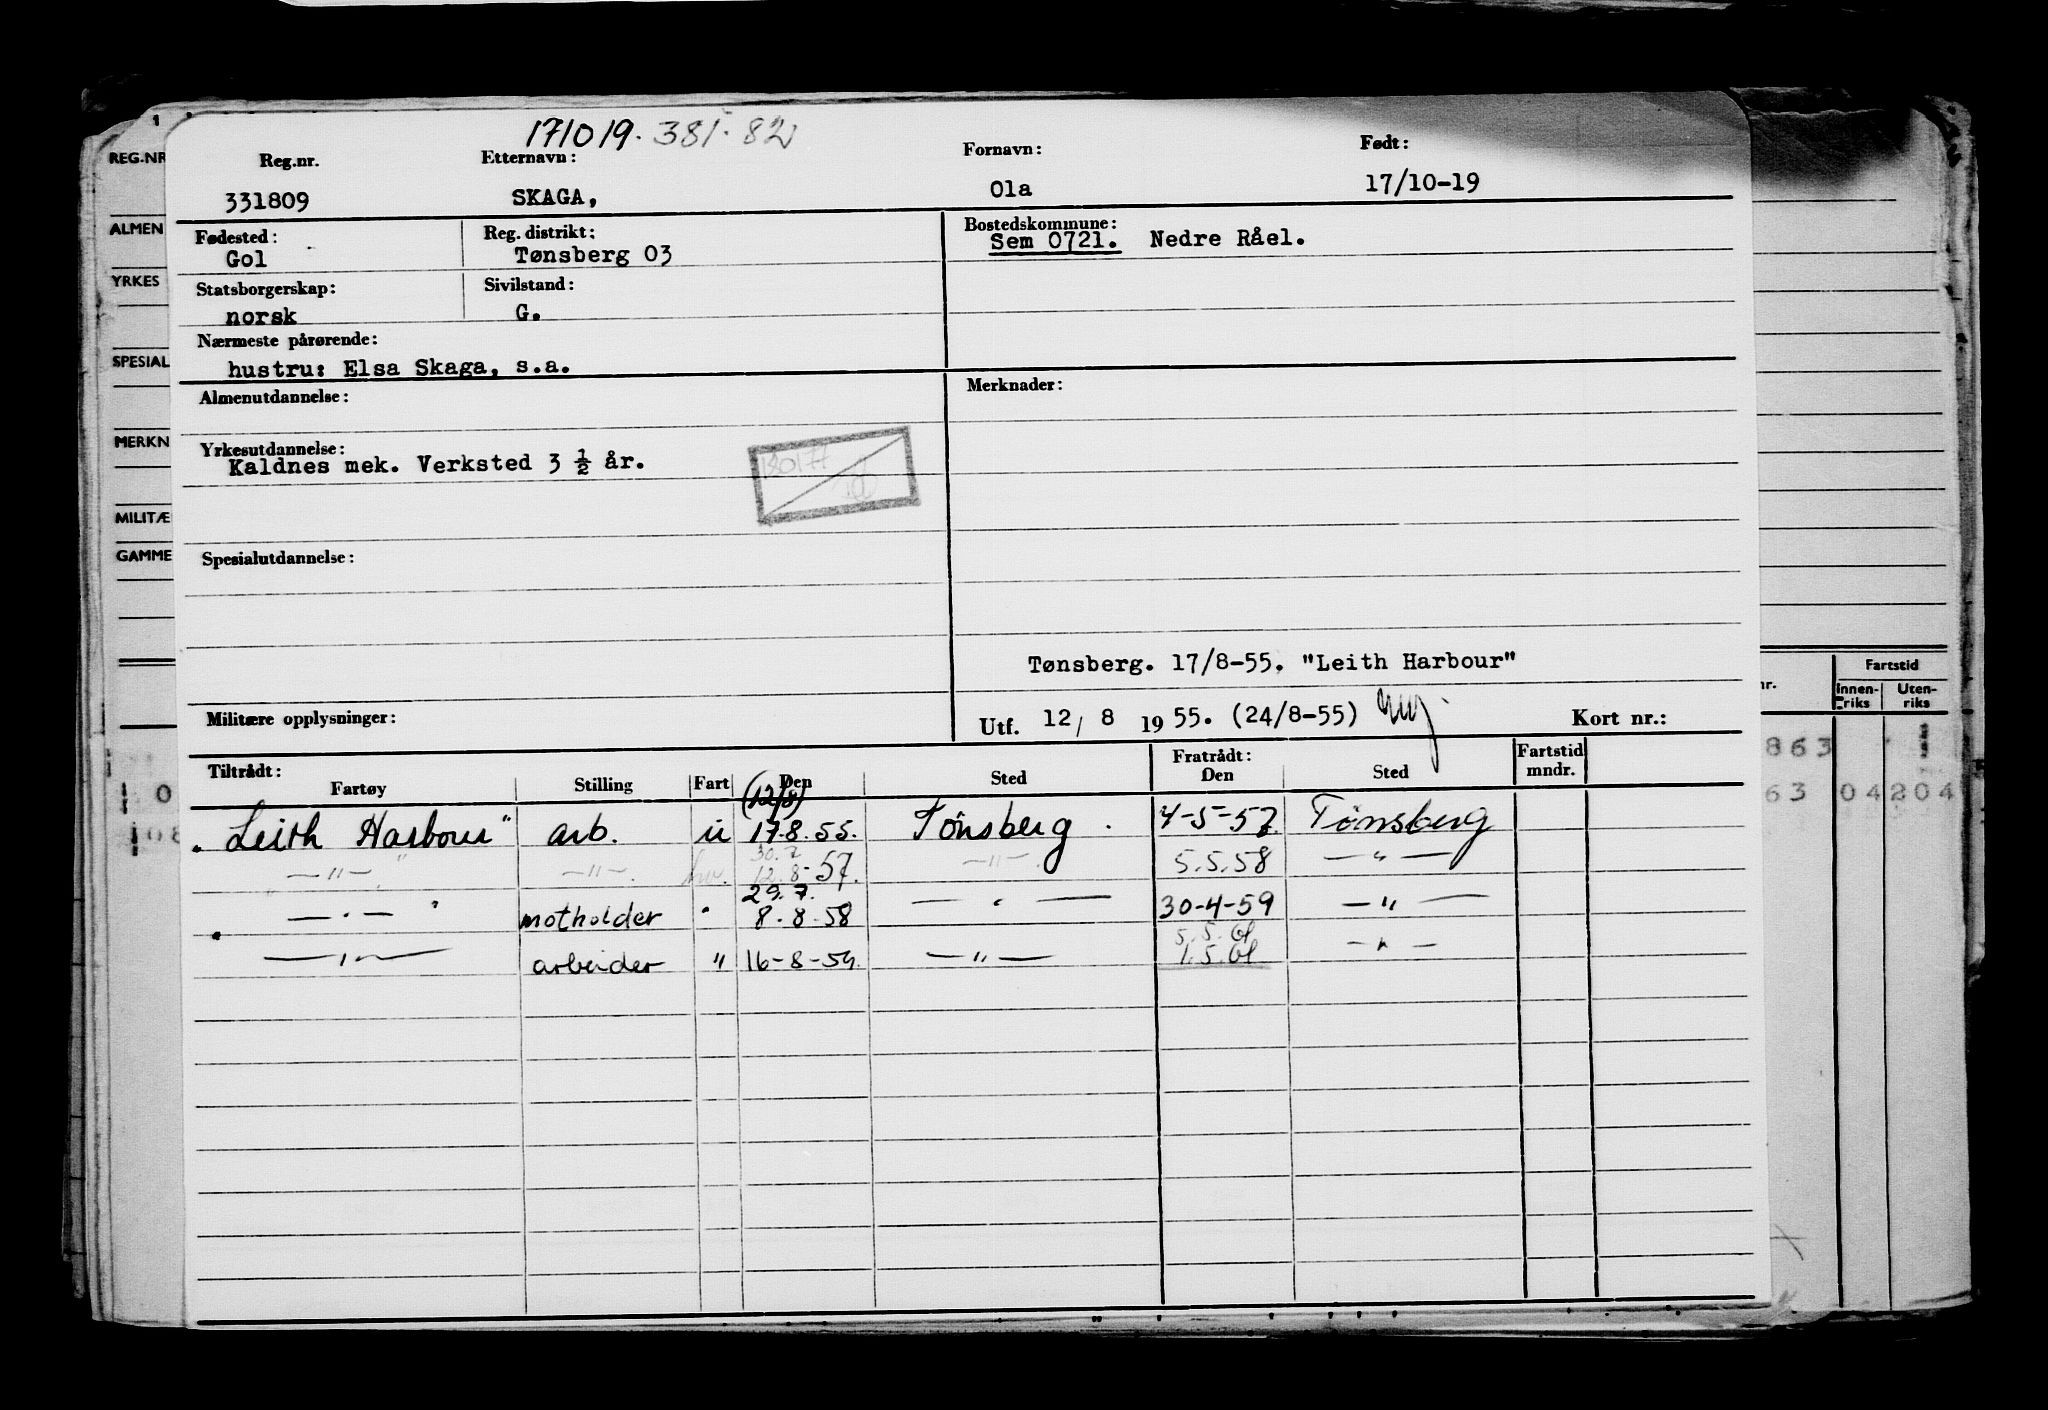 171019. 381.82
Reg.nr. Etternavn: Fornavn: Født:
331809 SKAGA, Ola 17/10-19
Fødested: Reg. distrikt: Bostedskommune:
Gol Tønsberg 03 Sem 0721. Nedre Råel.
Statsborgerskap: Sivilstand:
norsk G.
Nærmeste pårørende:
hustru: Elsa Skaga, s.a.
Almenutdannelse: Merknader:
Yrkesutdannelse:
Kaldnes mek. Verksted 3 ½ år.
Spesialutdannelse:
Tønsberg. 17/8-55. "Leith Harbour"
Militære opplysninger: Utf. 12/ 8 1955. (24/8-55) Kort nr.:
Tiltrådt: Fratrådt: Fartstid
Fartøy Stilling Fart Den Sted Den Sted mndr.
(12/8)
"Leith Harbour" arb. u 17.8.55. Tønsberg. 4-5-57. Tønsberg
30.7
—"— —"—. 12.8-57. —"—. 5.5.58 —"—
29.7.
—"— motholder " 8.8-58 —"— 30-4-59 —"—
5.5.61
—"— arbeider " 16-8-59. —"— 1.5.61 —"—
REG.NR
ALMEN
YRKES
SPESIAL
MERKN
MILITÆ
GAMME
nr. Fartstid
Innen-riks Uten-riks
863
63 04 204